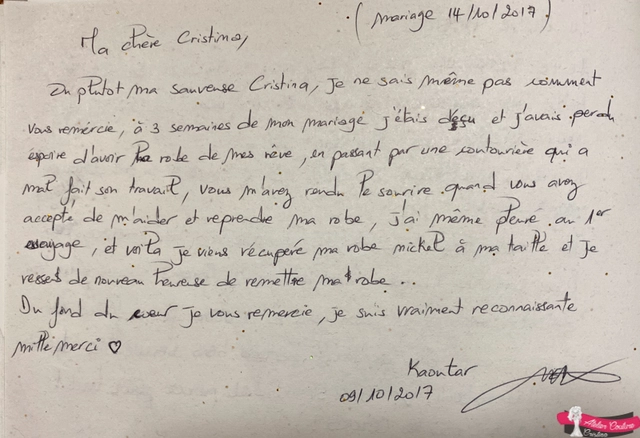 (mariage 14/10/2017)
Ma chère Cristina,
Ou plutot ma sauveuse Cristina, je ne sais même pas comment
vous remercie, à 3 semaines de mon mariage j'étais déçu et j'avais perdu
espoire d'avoir la robe de mes rêve, en passant par une couturière qui a
mal fait son travail, vous m'avez rendu le sourire quand vous avez
accepté de m'aider et reprendre ma robe, j'ai même pleuré au 1er
essayage, et voila je viens récupéré ma robe nickel à ma taille et je
ressens de nouveau heureuse de remettre ma robe..
Du fond du coeur je vous remercie, je suis vraiment reconnaissante
mille merci ♡
Kaoutar
09/10/2017
Atelier Couture